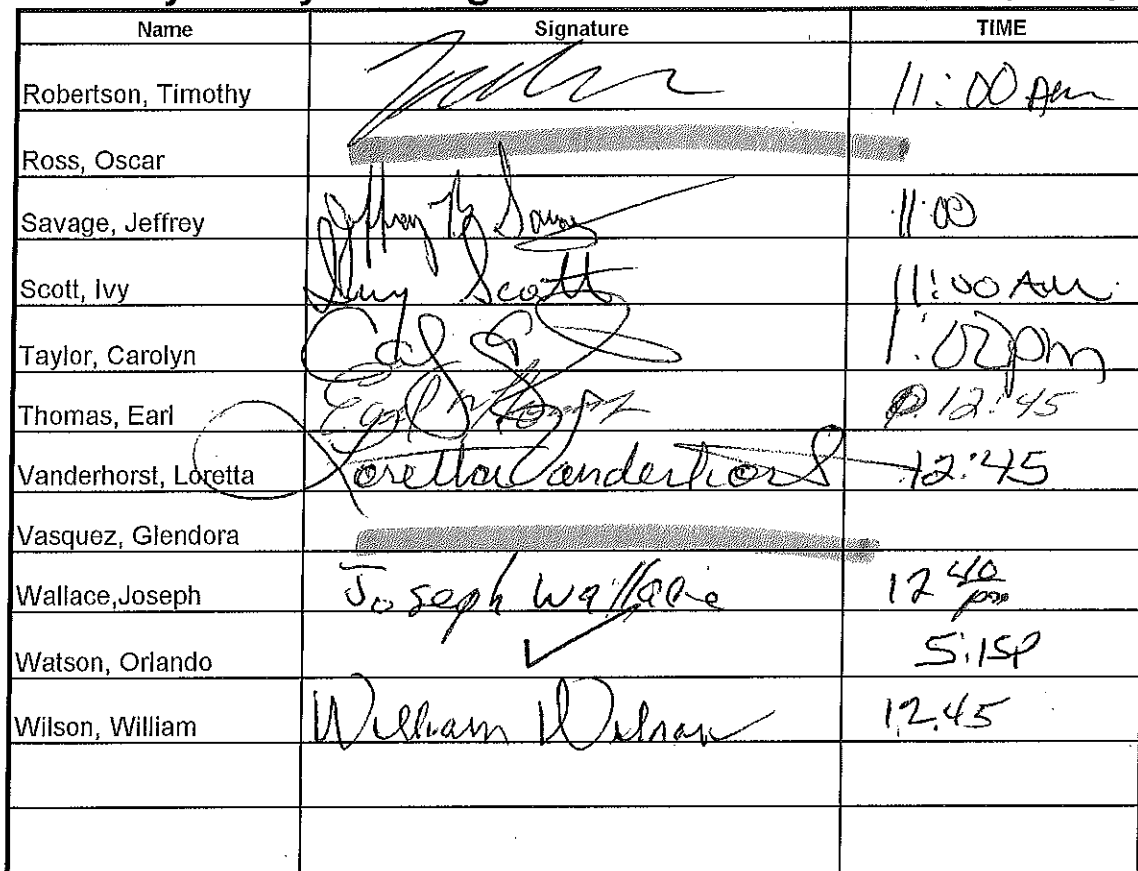 Name Signature TIME
Robertson, Timothy 11:00 Am
Ross, Oscar
Savage, Jeffrey Jeffrey 11:00
Scott, Ivy Ivy Scott 11:00 AM
Taylor, Carolyn 1:02pm
Thomas, Earl Earl Thomas 12:45
Vanderhorst, Loretta Loretta Vanderhorst 12:45
Vasquez, Glendora
Wallace,Joseph Joseph Wallace 12 40 pm
Watson, Orlando ✓ 5:15P
Wilson, William William Wilson 12.45